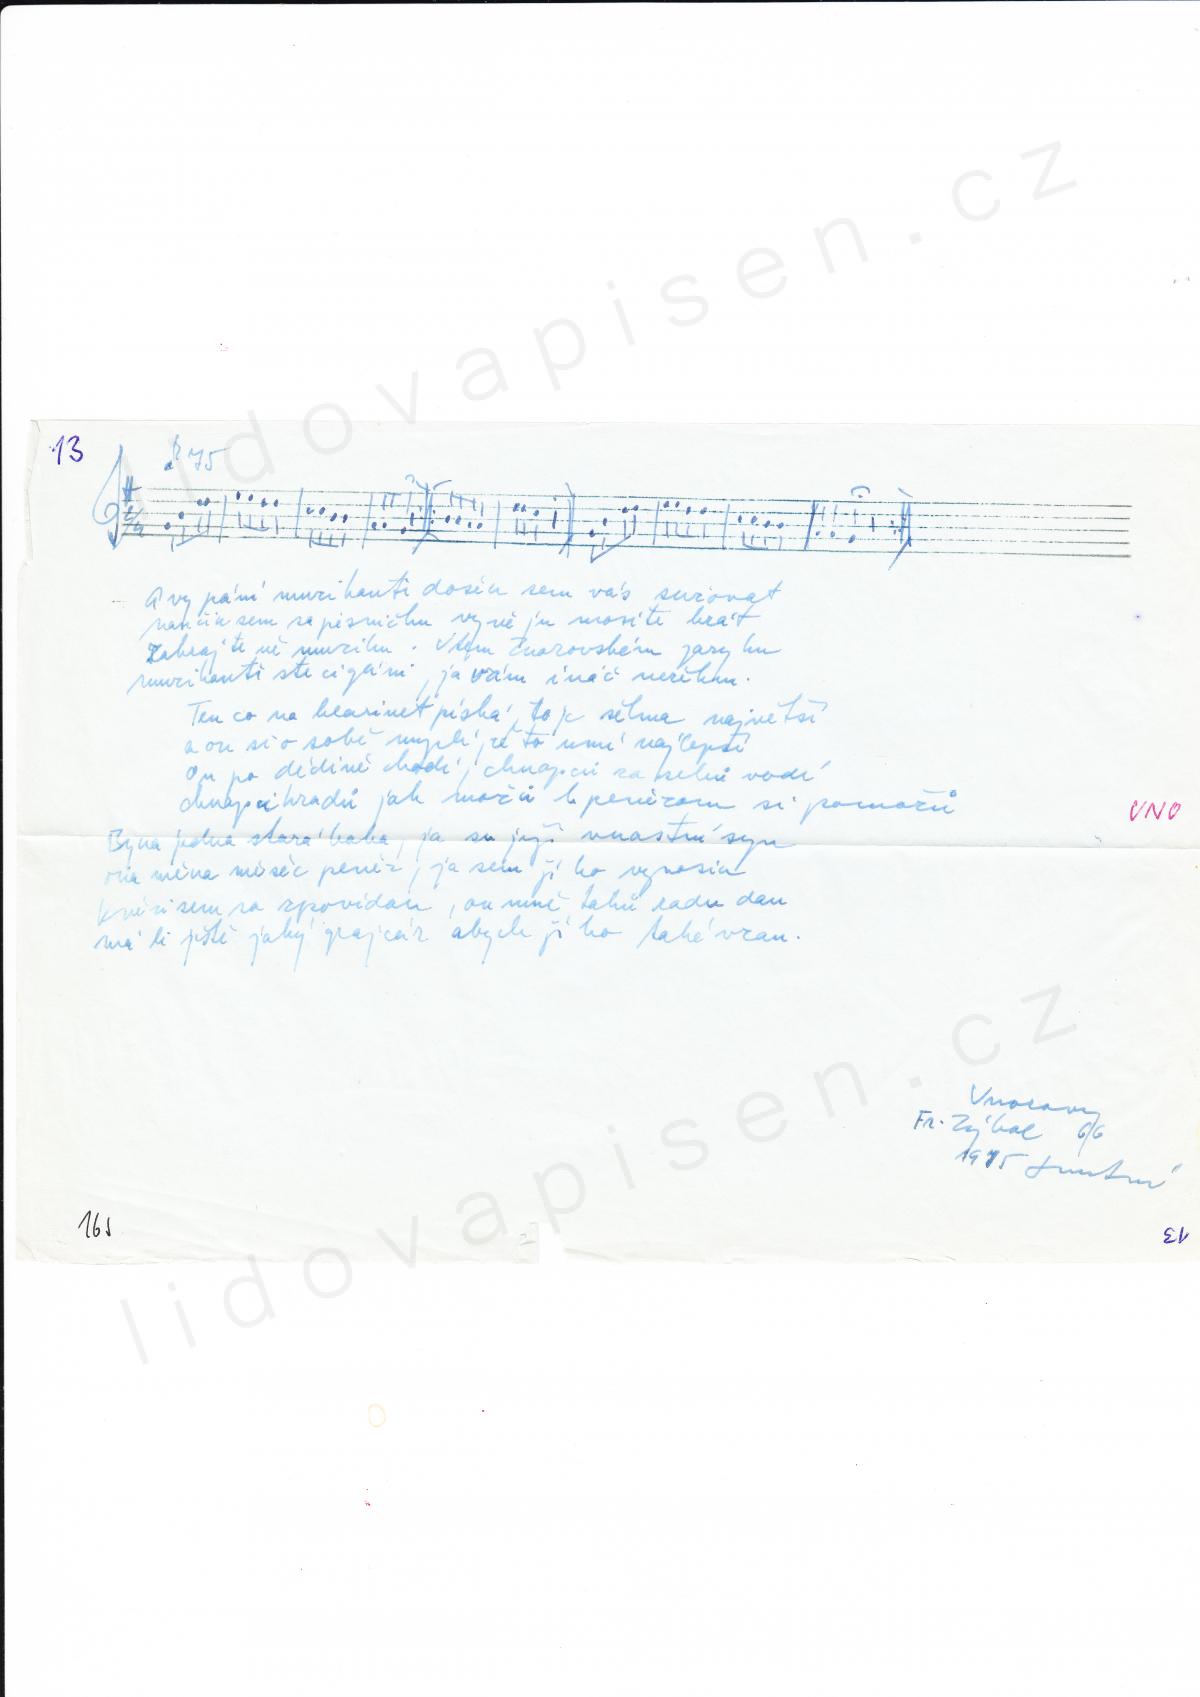 lidovapisen.cz
13
75
2/4
A vy páni muzikanti došéu sem vás sužovat
naučiu sem sa písničku vy ně ju mosíte hrát
Zahrajte ně muziku. V tem Znorovském jazyku
muzikanti ste cigáni, ja vám ináč neřeknu.
Ten co na klarinet píská, to je šelma najvětší
a on si o sobě myslí, že to umí najlepší
On po dědině chodí, chuapcú za sebú vodí
chuapci kradú jak možú k penězom si pomožú
VNO
Byua jedna stará baba, ja su její vuastní syn
ona měua měšec peněz, ja sem jí ho vynosiu
Kněži sem sa zpovídau, on mně takú radu dau
má li ještě jaký grajcár abych jí ho také vzau.
Vnorovy
Fr. Zýbal 66
1975
165
13
lidovapisen.cz